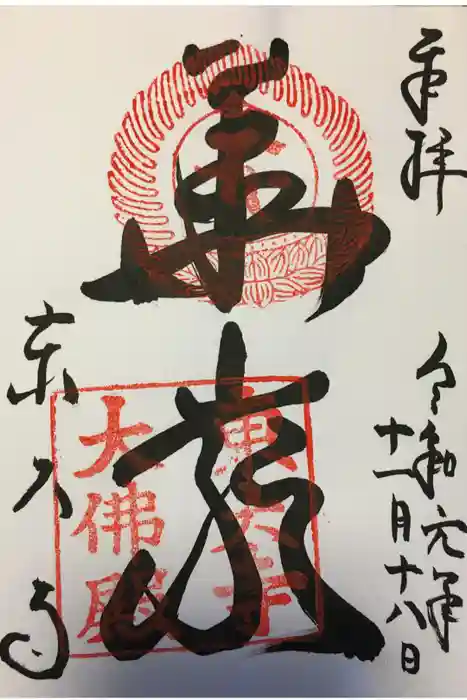 奉拝
令和元年
十一月十八日
華厳
東大寺
東大寺
大佛殿